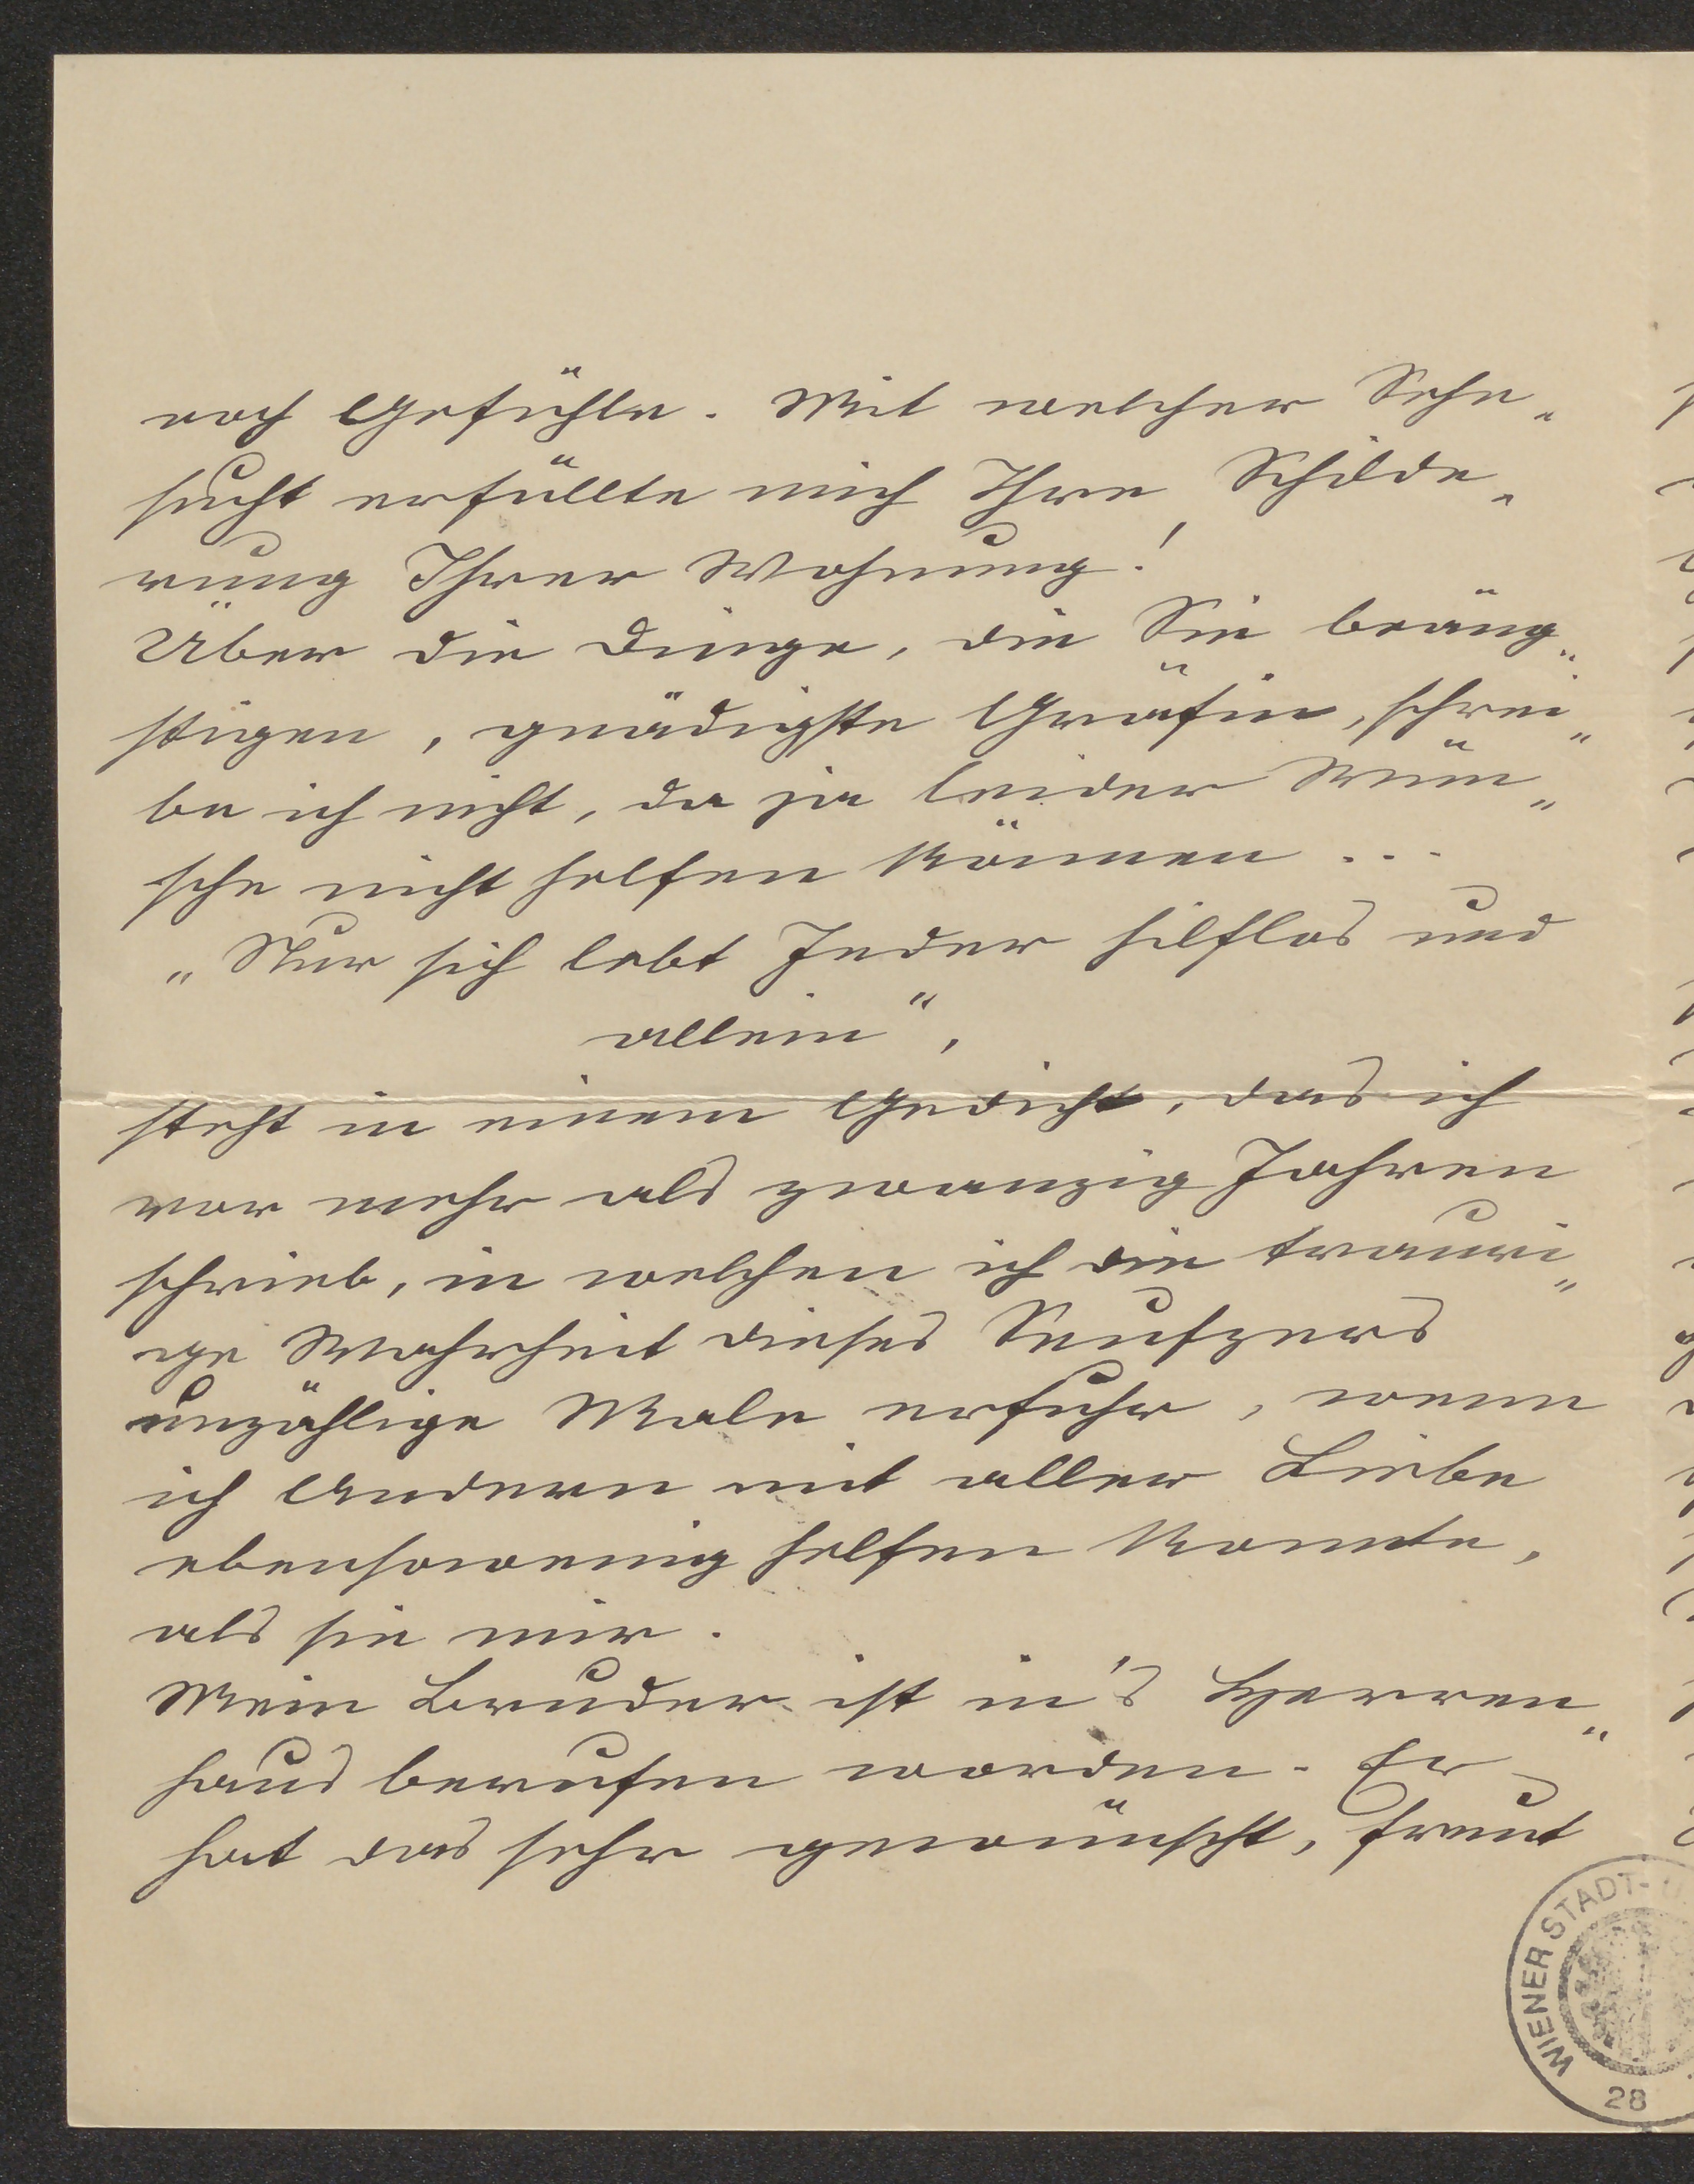 noch Gefühle. Mit welcher Sehn„
sucht erfüllte mich Ihre Schilde„
rung Ihrer Wohnung!
Über die Dinge, die Sie beäng„
stigen, gnädigste Gräfin, schrei„
be ich nicht, da ja leider Wün„
sche nicht helfen können ...
„Nur sich lebt Jeder hilflos und
allein“,
steht in einem Gedicht, das ich
vor mehr als zwanzig Jahren
schrieb, in welchen ich die trauri„
ge Wahrheit dieses Seufzers
unzählige Male erfuhr, wenn
ich Andern mit aller Liebe
ebensowenig helfen konnte,
als sie mir.
Mein Bruder ist in's Herren„
haus berufen worden. Er
hat das sehr gewünscht, freut
WIENER STADT-
28